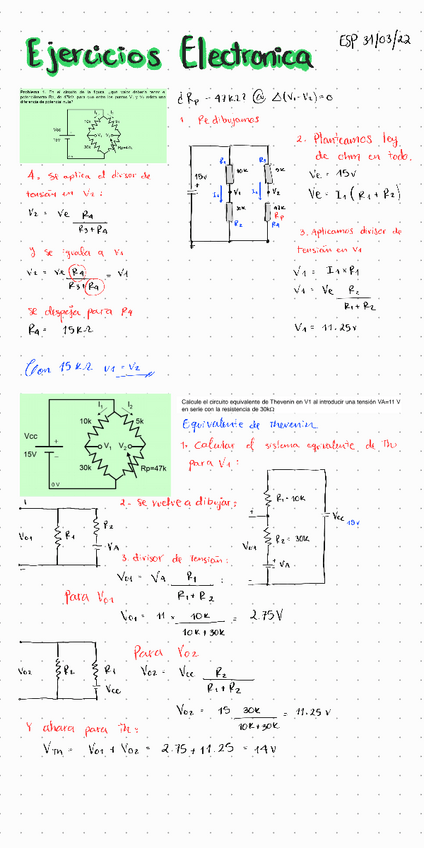 Ejercicios Electronica
ESP 31/03/22
Problema 1. En el circuito de la figura, ¿qué valor debería tener el
potenciómetro Rp, de 47kΩ, para que entre los puntos V1 y V2 exista una
diferencia de potencial nula?
¿ Rp - 47KΩ @ Δ(V1-V2)=0
1. Redibujamos
15v
R1
10K
V1
30K
R2
R3
5K
V2
47K
Rp
R4
2. Planteamos ley
de ohm en todo.
Ve = 15V
Ve = I1 (R1 + R2)
3. Aplicamos divisor de
tensión en V1
V1 = I1 × R1
V1 = Ve R2
R1 + R2
V1 = 11.25V
4. Si aplica el divisor de
tensión en V2:
V2 = Ve R4
R3+R4
Y se iguala a V1
V2 = Ve R4 = V1
R3+R4
se despeja para R4
R4 = 15KΩ
Con 15KΩ V1 = V2
Calcule el circuito equivalente de Thevenin en V1 al introducir una tensión VA=11 V
en serie con la resistencia de 30kΩ
Vcc
15V
0 V
I1
I2
10k
5k
V1
V2
30k
Rp=47k
Equivalente de thevenin
1. Calcular el sistema equivalente de Th
para V1:
R1=10K
R2=30K
VA
Vcc
15V
Vo1
2. Se vuelve a dibujar:
Vo1
R1
R2
VA
3. divisor de tensión:
Vo1 = VA R1
R1 + R2
Para Vo1
Vo1 = 11 × 10K = 2.75V
10K+30K
Para Vo2
Vo2
R2
R1
Vcc
Vo2 = Vcc R2
R1 + R2
Vo2 = 15 30K = 11.25V
10K+30K
Y ahora para Th:
VTh = Vo1 + Vo2 = 2.75 + 11.25 = 14V